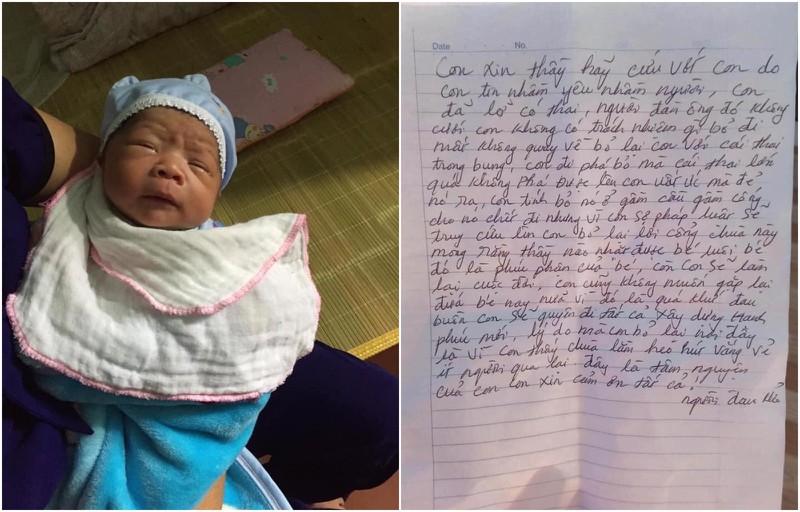 Date No.
Con xin thầy hãy cứu vớt con do
con tin nhầm yêu nhầm người, con
đã lỡ có thai, người đàn ông đó không
cưới con không có trách nhiệm gì bỏ đi
mất không quay về bỏ lại con với cái thai
trong bụng, con đi phá bỏ mà cái thai lớn
quá không phá được lên con uất ức mà đẻ
nó ra, con tính bỏ nó ở gầm cầu gầm cống
cho nó chết đi nhưng vì con sợ pháp luật sẽ
truy cứu lên con bỏ lại lối cổng chùa này
mong rằng thầy nào nhặt được bé nuôi bé
đó là phúc phận của bé, còn con sẽ làm
lại cuộc đời, con cũng không muốn gặp lại
đứa bé này nữa vì đó là quá khứ đau
buồn con sẽ quyên đi tất cả xây dựng hạnh
phúc mới, lý do mà con bỏ lại nơi đây
là vì con thấy chùa lằm heo hút vắng vẻ
ít người qua lại đây là tâm nguyện
của con con xin cảm ơn tất cả!
người đau khổ